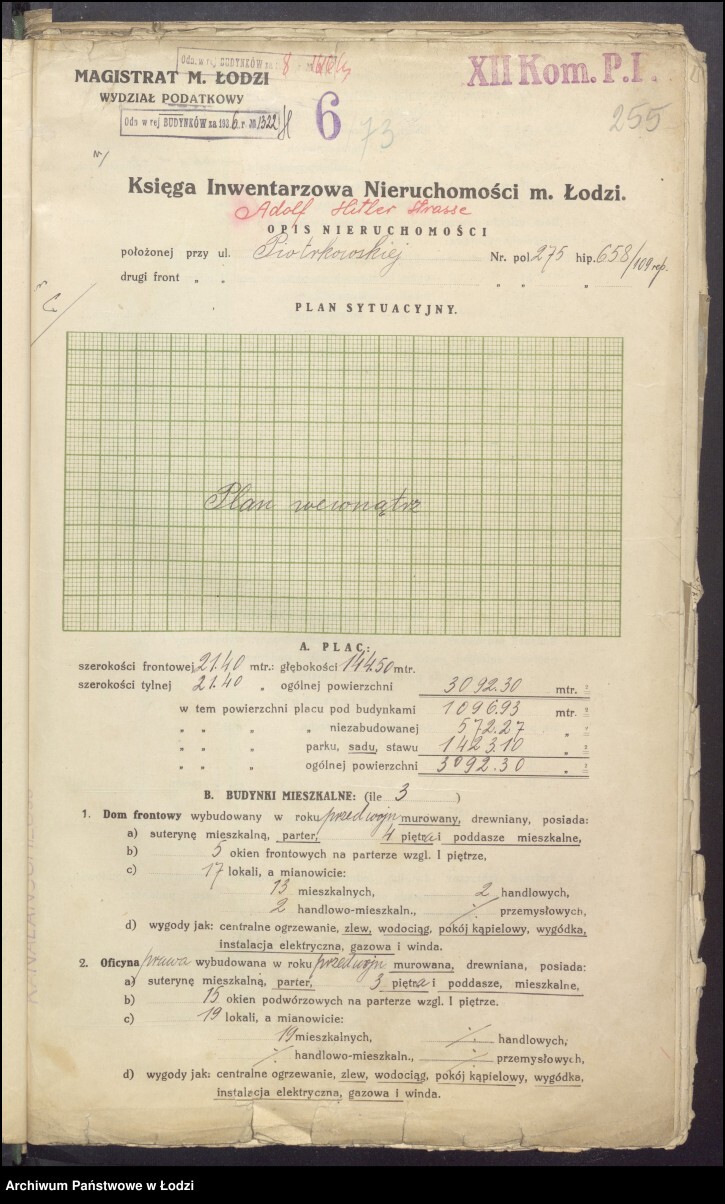 Odn. w rej. BUDYNKÓW za 8
MAGISTRAT M. ŁODZI
WYDZIAŁ PODATKOWY
Odn w rej BUDYNKÓW za 1936 r № 1322
6
73
XII Kom. P.P.
255
Księga Inwentarzowa Nieruchomości m. Łodzi.
Adolf Hitler Strasse
OPIS NIERUCHOMOŚCI
położonej przy ul. Piotrkowskiej Nr. pol. 275 hip. 658/109 rep.
drugi front „ „ „ „ „
PLAN SYTUACYJNY.
Plan wewnątrz
A. PLAC:
szerokości frontowej 21.40 mtr.: głębokości 144.50 mtr.
szerokości tylnej 21.40 „ ogólnej powierzchni 3092.30 mtr. ²
w tem powierzchni placu pod budynkami 1096.93 mtr. ²
„ „ „ „ niezabudowanej 572.27 „ ²
„ „ „ parku, sadu, stawu 1423.10 „ ²
„ „ „ ogólnej powierzchni 3092.30 „ ²
B. BUDYNKI MIESZKALNE: (ile 3 )
1. Dom frontowy wybudowany w roku przedwojn murowany, drewniany, posiada:
a) suterynę mieszkalną, parter, 4 piętra i poddasze mieszkalne,
b) 5 okien frontowych na parterze wzgl. I piętrze,
c) 17 lokali, a mianowicie:
13 mieszkalnych, 2 handlowych,
2 handlowo-mieszkaln., ·/. przemysłowych,
d) wygody jak: centralne ogrzewanie, zlew, wodociąg, pokój kąpielowy, wygódka,
instalacja elektryczna, gazowa i winda.
2. Oficyna prawa wybudowana w roku przedwojn murowana, drewniana, posiada:
a) suterynę mieszkalną, parter, 3 piętra i poddasze, mieszkalne,
b) 15 okien podwórzowych na parterze wzgl. I piętrze.
c) 19 lokali, a mianowicie:
19 mieszkalnych, ·/. handlowych,
·/. handlowo-mieszkaln., ·/. przemysłowych,
d) wygody jak: centralne ogrzewanie, zlew, wodociąg, pokój kąpielowy, wygódka,
instalacja elektryczna, gazowa i winda.
Archiwum Państwowe w Łodzi